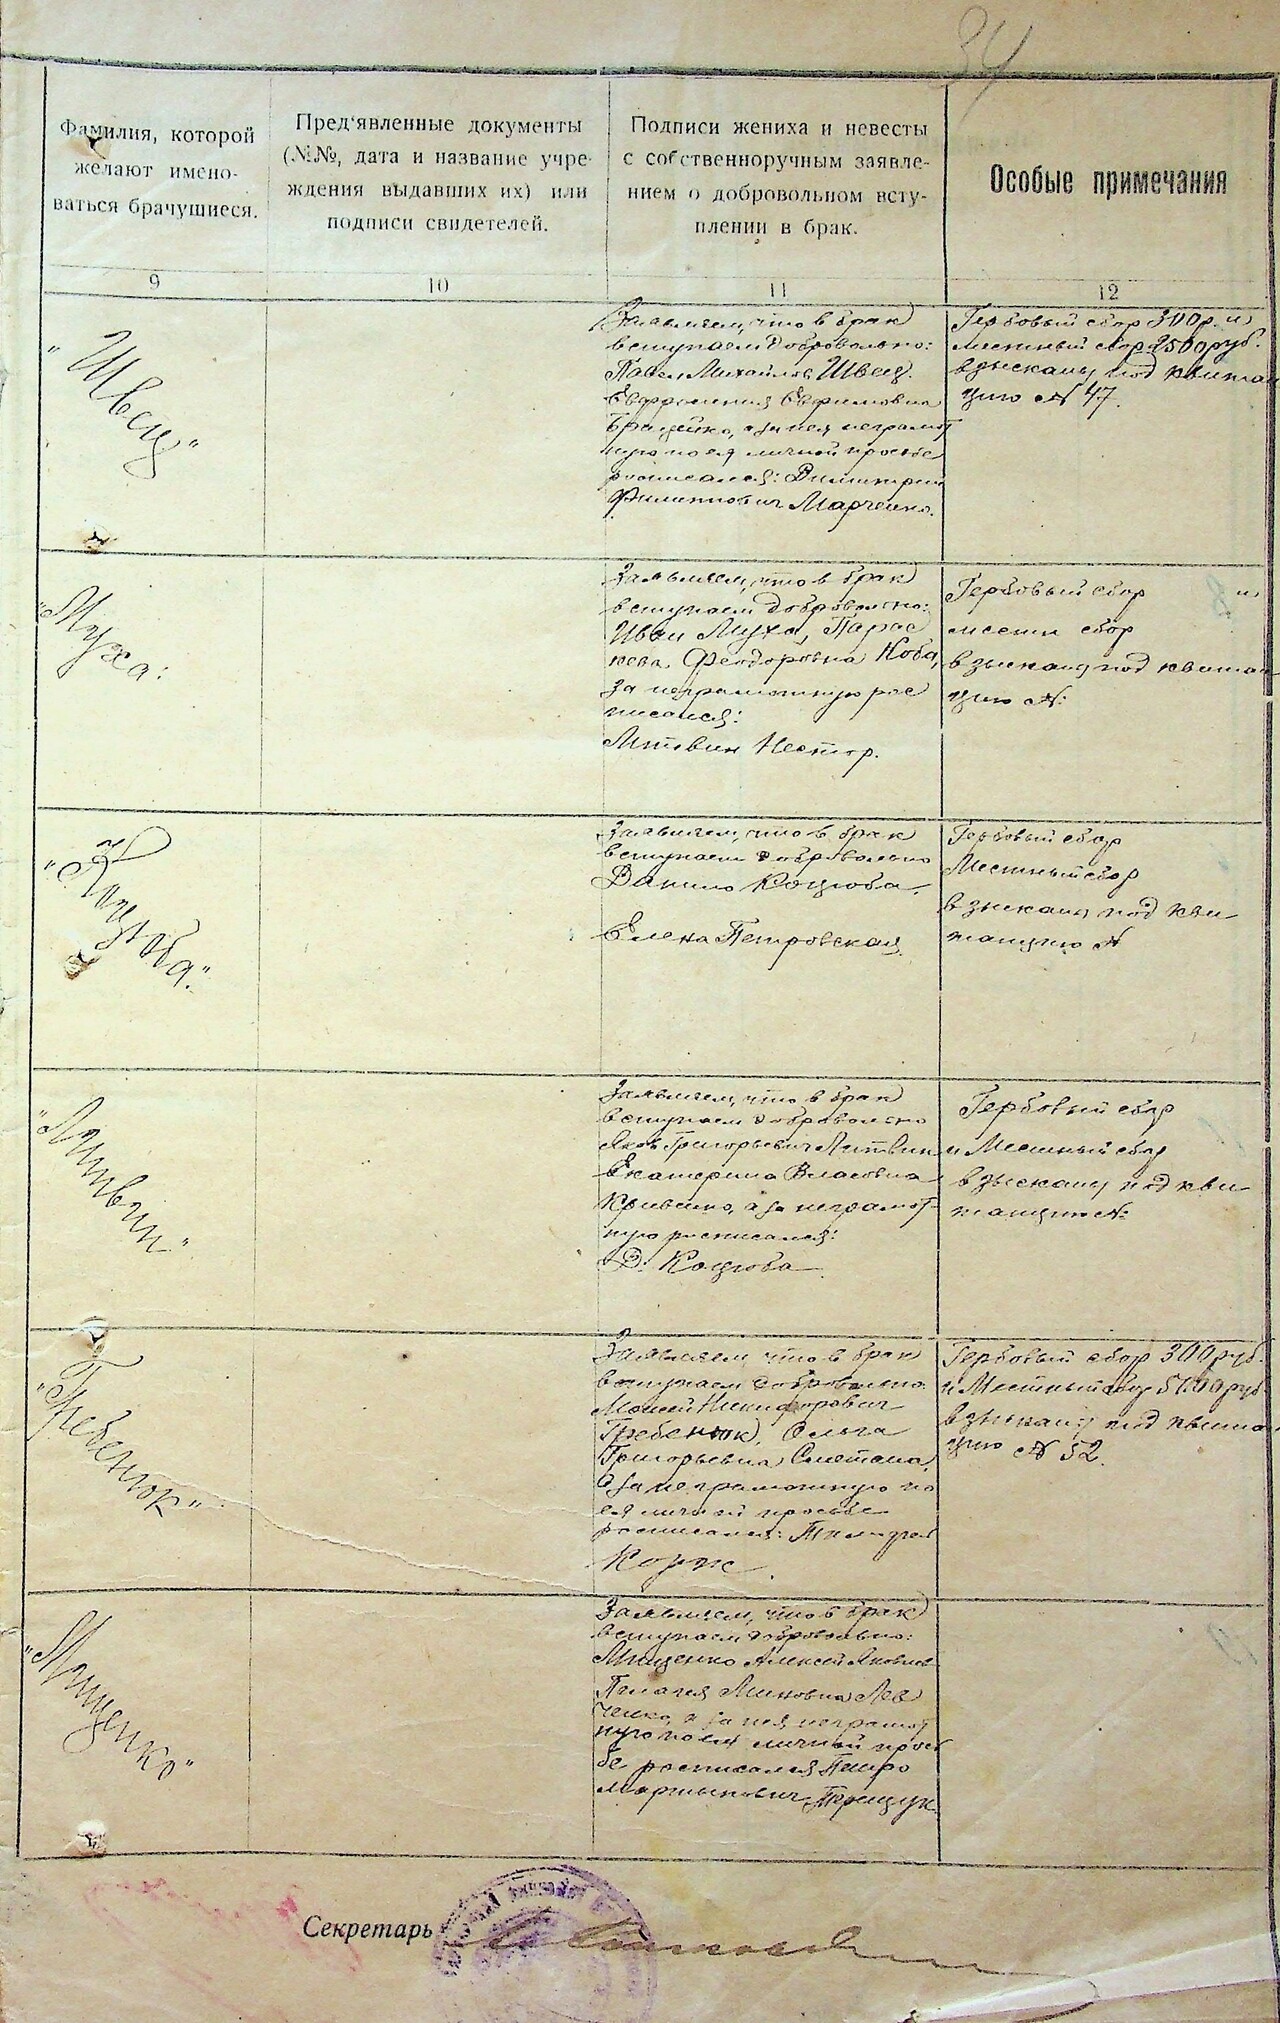 34
Фамилия, которой
желают имено-
ваться брачущиеся.
Пред'явленные документы
(№№, дата и название учре-
ждения выдавших их) или
подписи свидетелей.
Подписи жениха и невесты
с собственноручным заявле-
нием о добровольном всту-
плении в брак.
Особые примечания
9
10
11
12
"Швец"
Заявляем, что в брак
вступаем добровольно:
Павел Михайлов Швец.
Евфросиния Евфимовна
а за нея неграмот
ную по ея личной просьбе
росписался: Димитрий
Филиппович Марченко.
Гербовый сбор 300 р. и
местный сбор 2500 руб.
взысканы под квитан
цию № 47.
"Муха:
Заявляем, что в брак
вступаем добровольно:
Иван Муха, Парас
кева Феодоровна Коба,
за неграмотную рос
писался:
Литвин Нестор.
Гербовый сбор и
местн сбор
взысканы под квитан
цию №:
"Коцюба".
Заявляем, что в брак
вступаем добровольно
Данило Коцюба.
Елена Петровская.
Гербовый сбор
Местный сбор
взысканы под кви-
танцию №
"Литвин"
Заявляем, что в брак
вступаем добровольно
Яков Григорьевич Литвин
Екатерина Власовна
Кривенко, а за неграмот-
ную росписался:
Д. Коцюба
Гербовый сбор
и Местный сбор
взысканы под кви-
танцию №:
"Гребенюк"
Заявляем, что в брак
вступаем добровольно
Моисей Никифорович
Гребенюк, Ольга
Григорьевна Сметана,
а за неграмотную по
ея личной просьбе
росписался:
Корж.
Гербовый сбор 300 руб.
и Местный сбор 5000 руб.
взысканы под квитан
цию № 52.
"Мищенко"
Заявляем, что в брак
вступаем добровольно:
Мищенко Алексей Яковлев
Пелагея Миновна Лев
ченко, а за нея неграмот
ную по ея личной прось
бе росписался Петро
Мартынович Терещук.
Секретарь